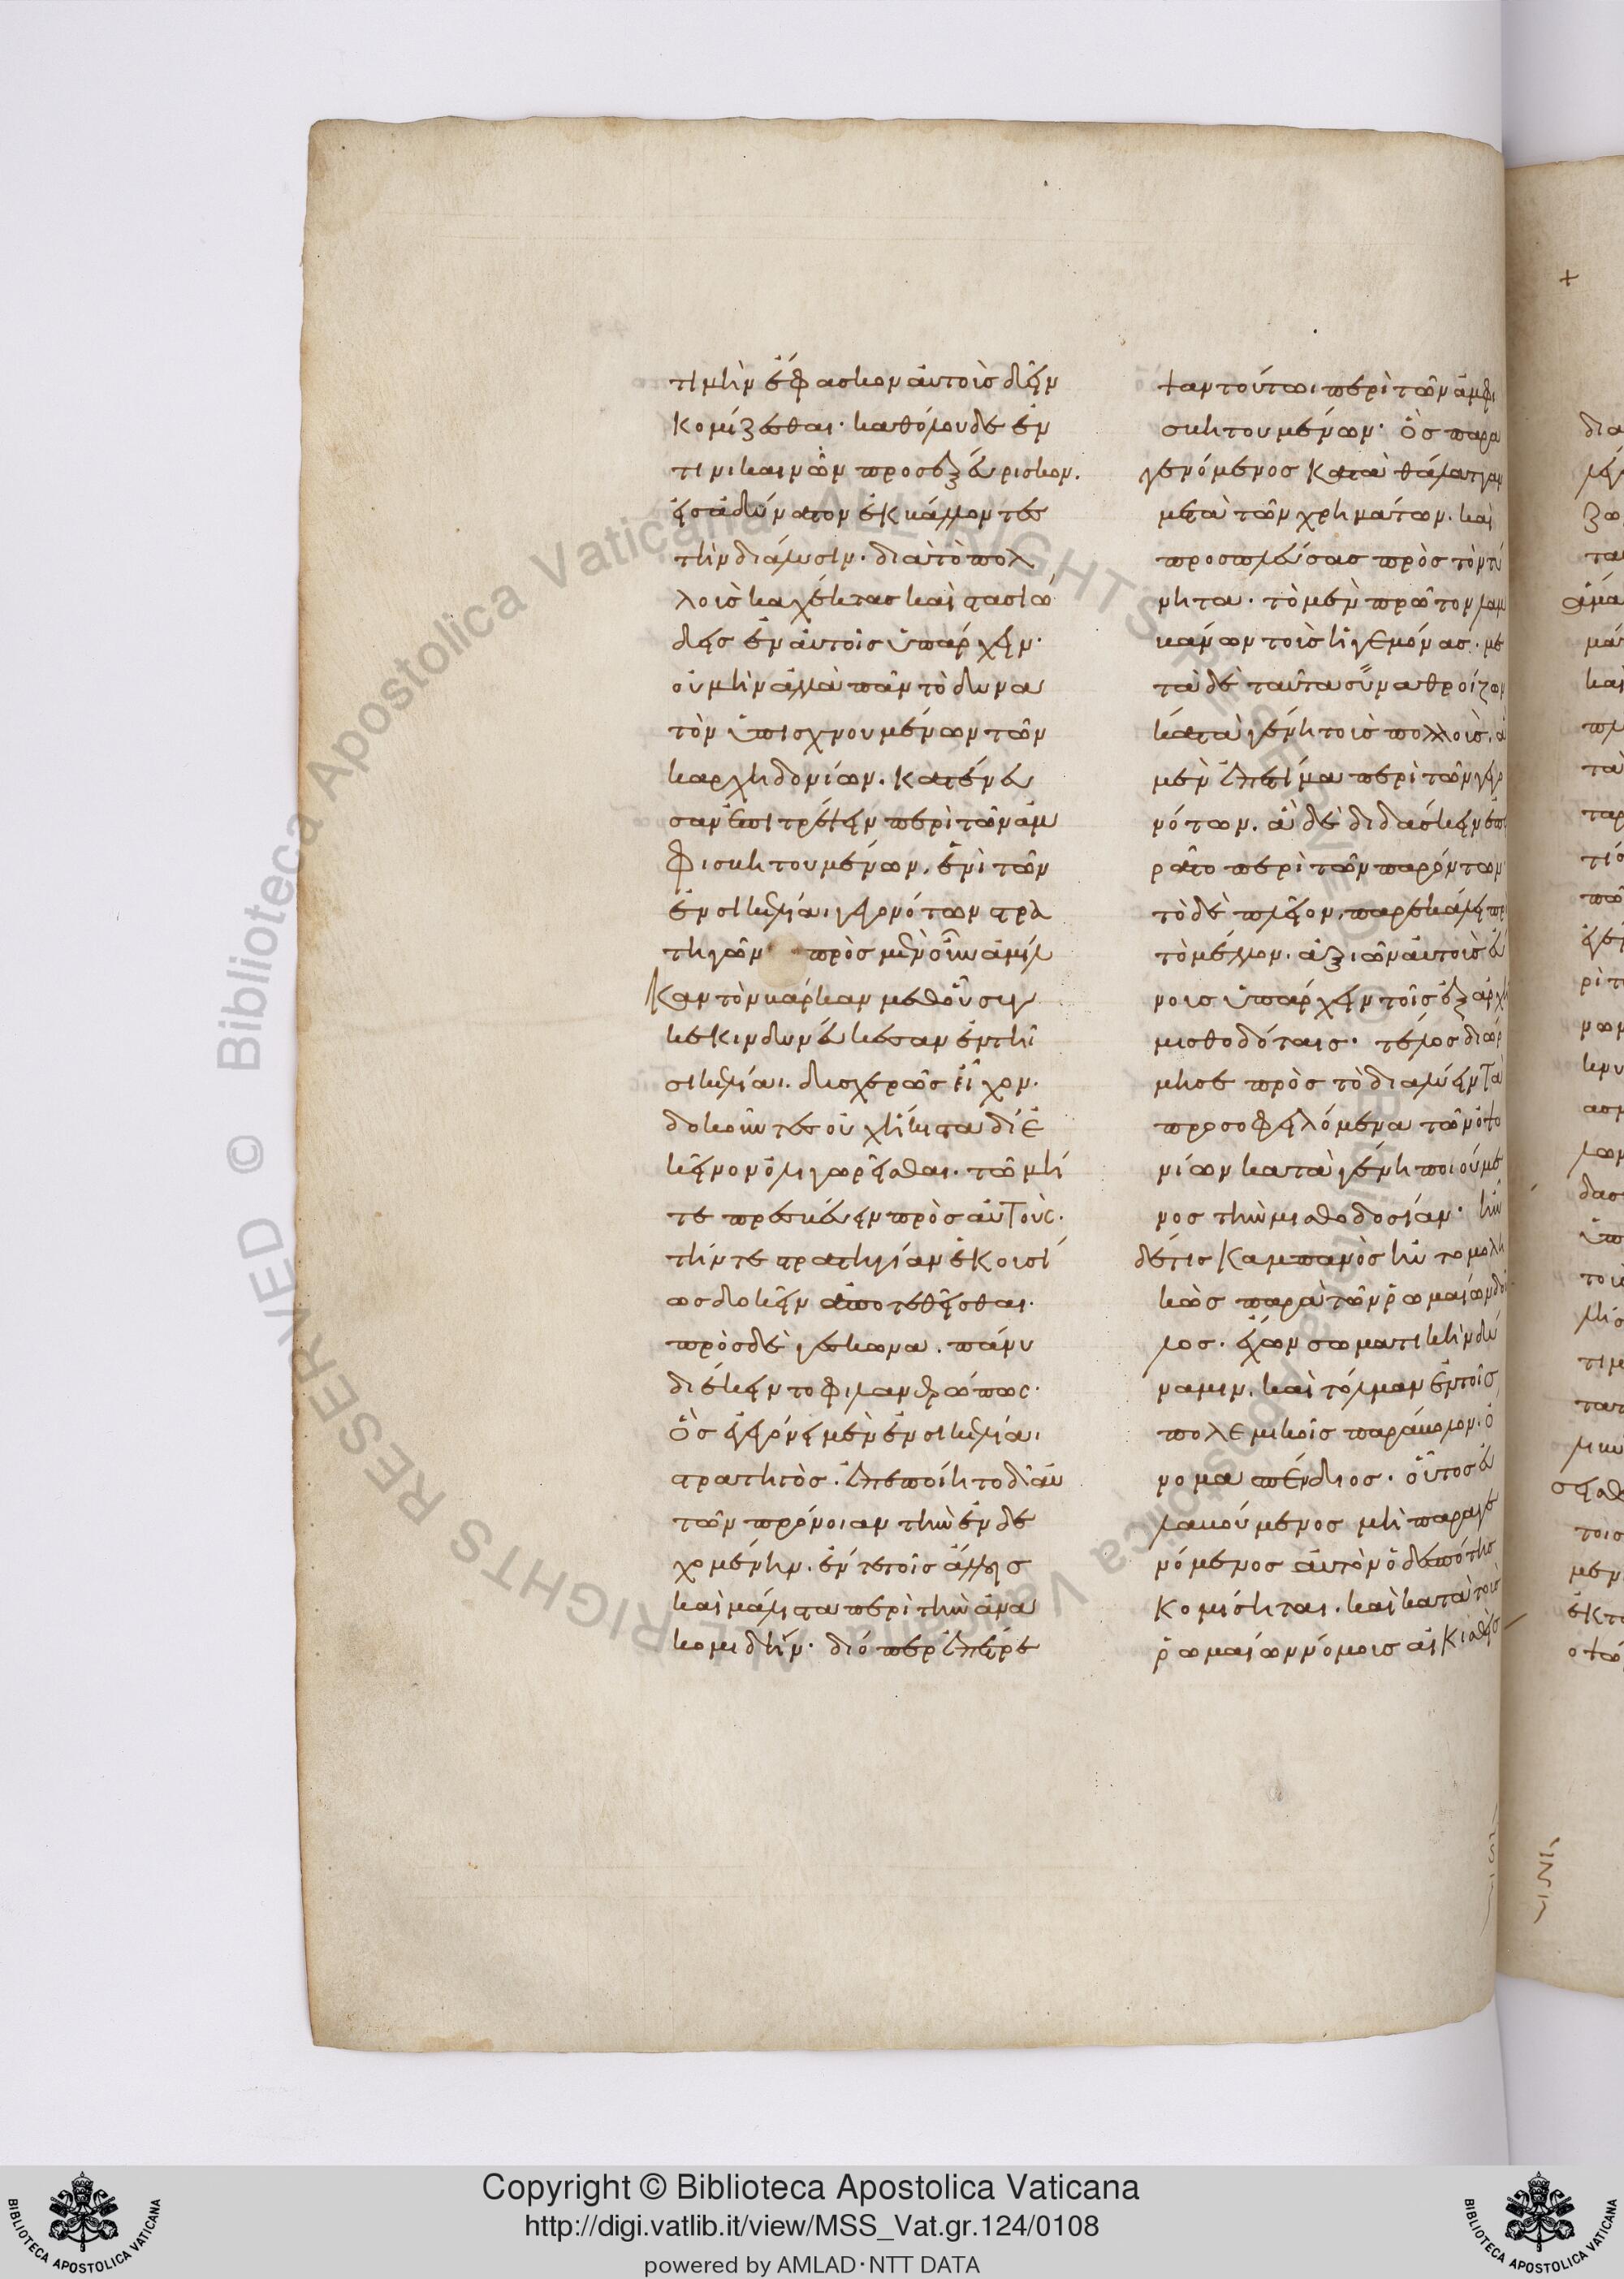 τιμὴν ἔφασκον αὐτοῖς δεῖν
κομίζεσθαι. καθόλου δὲ ἕν
τινι καινὸν προσεξεύρισκον.
εἰς ἀδύνατον ἐκβάλλοντες
τὴν διάλυσιν. διὰ τὸ πολ
λοὺς καχέκτας καὶ στασιώ
δεις ἐν αὐτοῖς ὑπάρχειν.
οὐ μὴν ἀλλὰ πᾶν τὸ δυνα
τὸν ὑπισχνουμένων τῶν
καρχηδονίων. κατένευ
σαν ἐπιτρέψειν περὶ τῶν ἀμ
φισβητουμένων. ἑνὶ τῶν
ἐν σικελίαι γεγονότων στρα
τηγῶν πρὸς μὲν οὖν ἀμίλ
καν τὸν βάρκαν μεθ οὗ συγ
κεκινδυνεύκεσαν ἐν τῆι
σικελίαι. δυσχερῶς εἶχον.
δοκοῦντες οὐχ ἥκιστα δι ἐ
κεῖνον ὀλιγωρεῖσθαι. τῶ μή
τε πρεσβεύειν πρὸς αὐτούς.
τήν τε στρατηγίαν ἑκουσί
ως δοκεῖν ἀποτεθεῖσθαι.
πρὸς δὲ γέσκωνα. πάνυ
διέκειντο φιλανθρώπως.
ὃς ἐγεγόνει μὲν ἐν σικελίαι
στρατηγὸς. ἐπεποίητο δ αὐ
τῶν πρόνοιαν τὴν ἐνδε
χομένην. ἔν τε τοῖς ἄλλοις
καὶ μάλιστα περὶ τὴν ἀνα
κομιδήν. διόπερ ἐπέτρε
ψαν τούτωι περὶ τῶν ἀμφι
σβητουμένων. ὃς παρα
γενόμενος κατὰ θάλατταν
μετὰ τῶν χρημάτων. καὶ
προσπλεύσας πρὸς τὸν τύ
νητα. τὸ μὲν πρῶτον λαμ
βάνων τοὺς ἡγεμόνας. με
τὰ δὲ ταῦτα συναθροίζων
κατὰ γένη τοὺς πολλοὺς. ἃ
μὲν ἐπετίμα περὶ τῶν γεγο
νότων. ἃ δὲ διδάσκειν ἐπει
ρᾶτο περὶ τῶν παρόντων
τὸ δὲ πλεῖον. παρεκάλει πρὸς
τὸ μέλλον. ἀξιῶν αὐτοὺς εὔ
νους ὑπάρχειν τοῖς ἐξ ἀρχῆς
μισθοδόταις. τέλος δ ὥρ
μησε πρὸς τὸ διαλύειν τὰ
προσοφειλόμενα τῶν ὀψω
νίων κατὰ γένη ποιούμε
νος τὴν μισθοδοσίαν. ἦν
δέ τις καμπανὸς ηὐτομολη
κὼς παρὰ τῶν ῥωμαίων δοῦ
λος. ἔχων σωματικὴν δύ
ναμιν. καὶ τόλμαν ἐν τοῖς
πολεμικοῖς παράβολον. ὄ
νομα σπένδιος. οὗτος εὐ
λαβούμενος μὴ παραγε
νόμενος αὐτὸν ὁ δεσπότης
κομίσηται. καὶ κατὰ τοὺς
ῥωμαίων νόμους αἰκισθεὶς